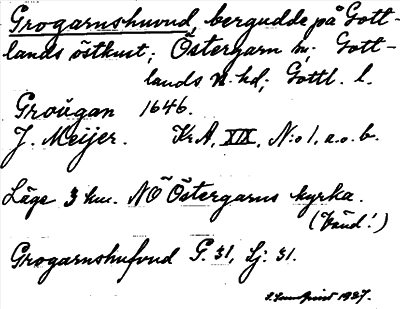 Grogarnshuvud, bergudde på Gott-
lands östkust; Östergarn sn, Gott-
lands n. hd; Gottl. l.
Groŭgan 1646.
J. Meijer. KrA, XIX, N:o 1, a.o. b.
Läge 3 km. NÖ Östergarns kyrka.
(Vänd!)
Grogarnshufvud G. 31, Lj. 31.
1927.